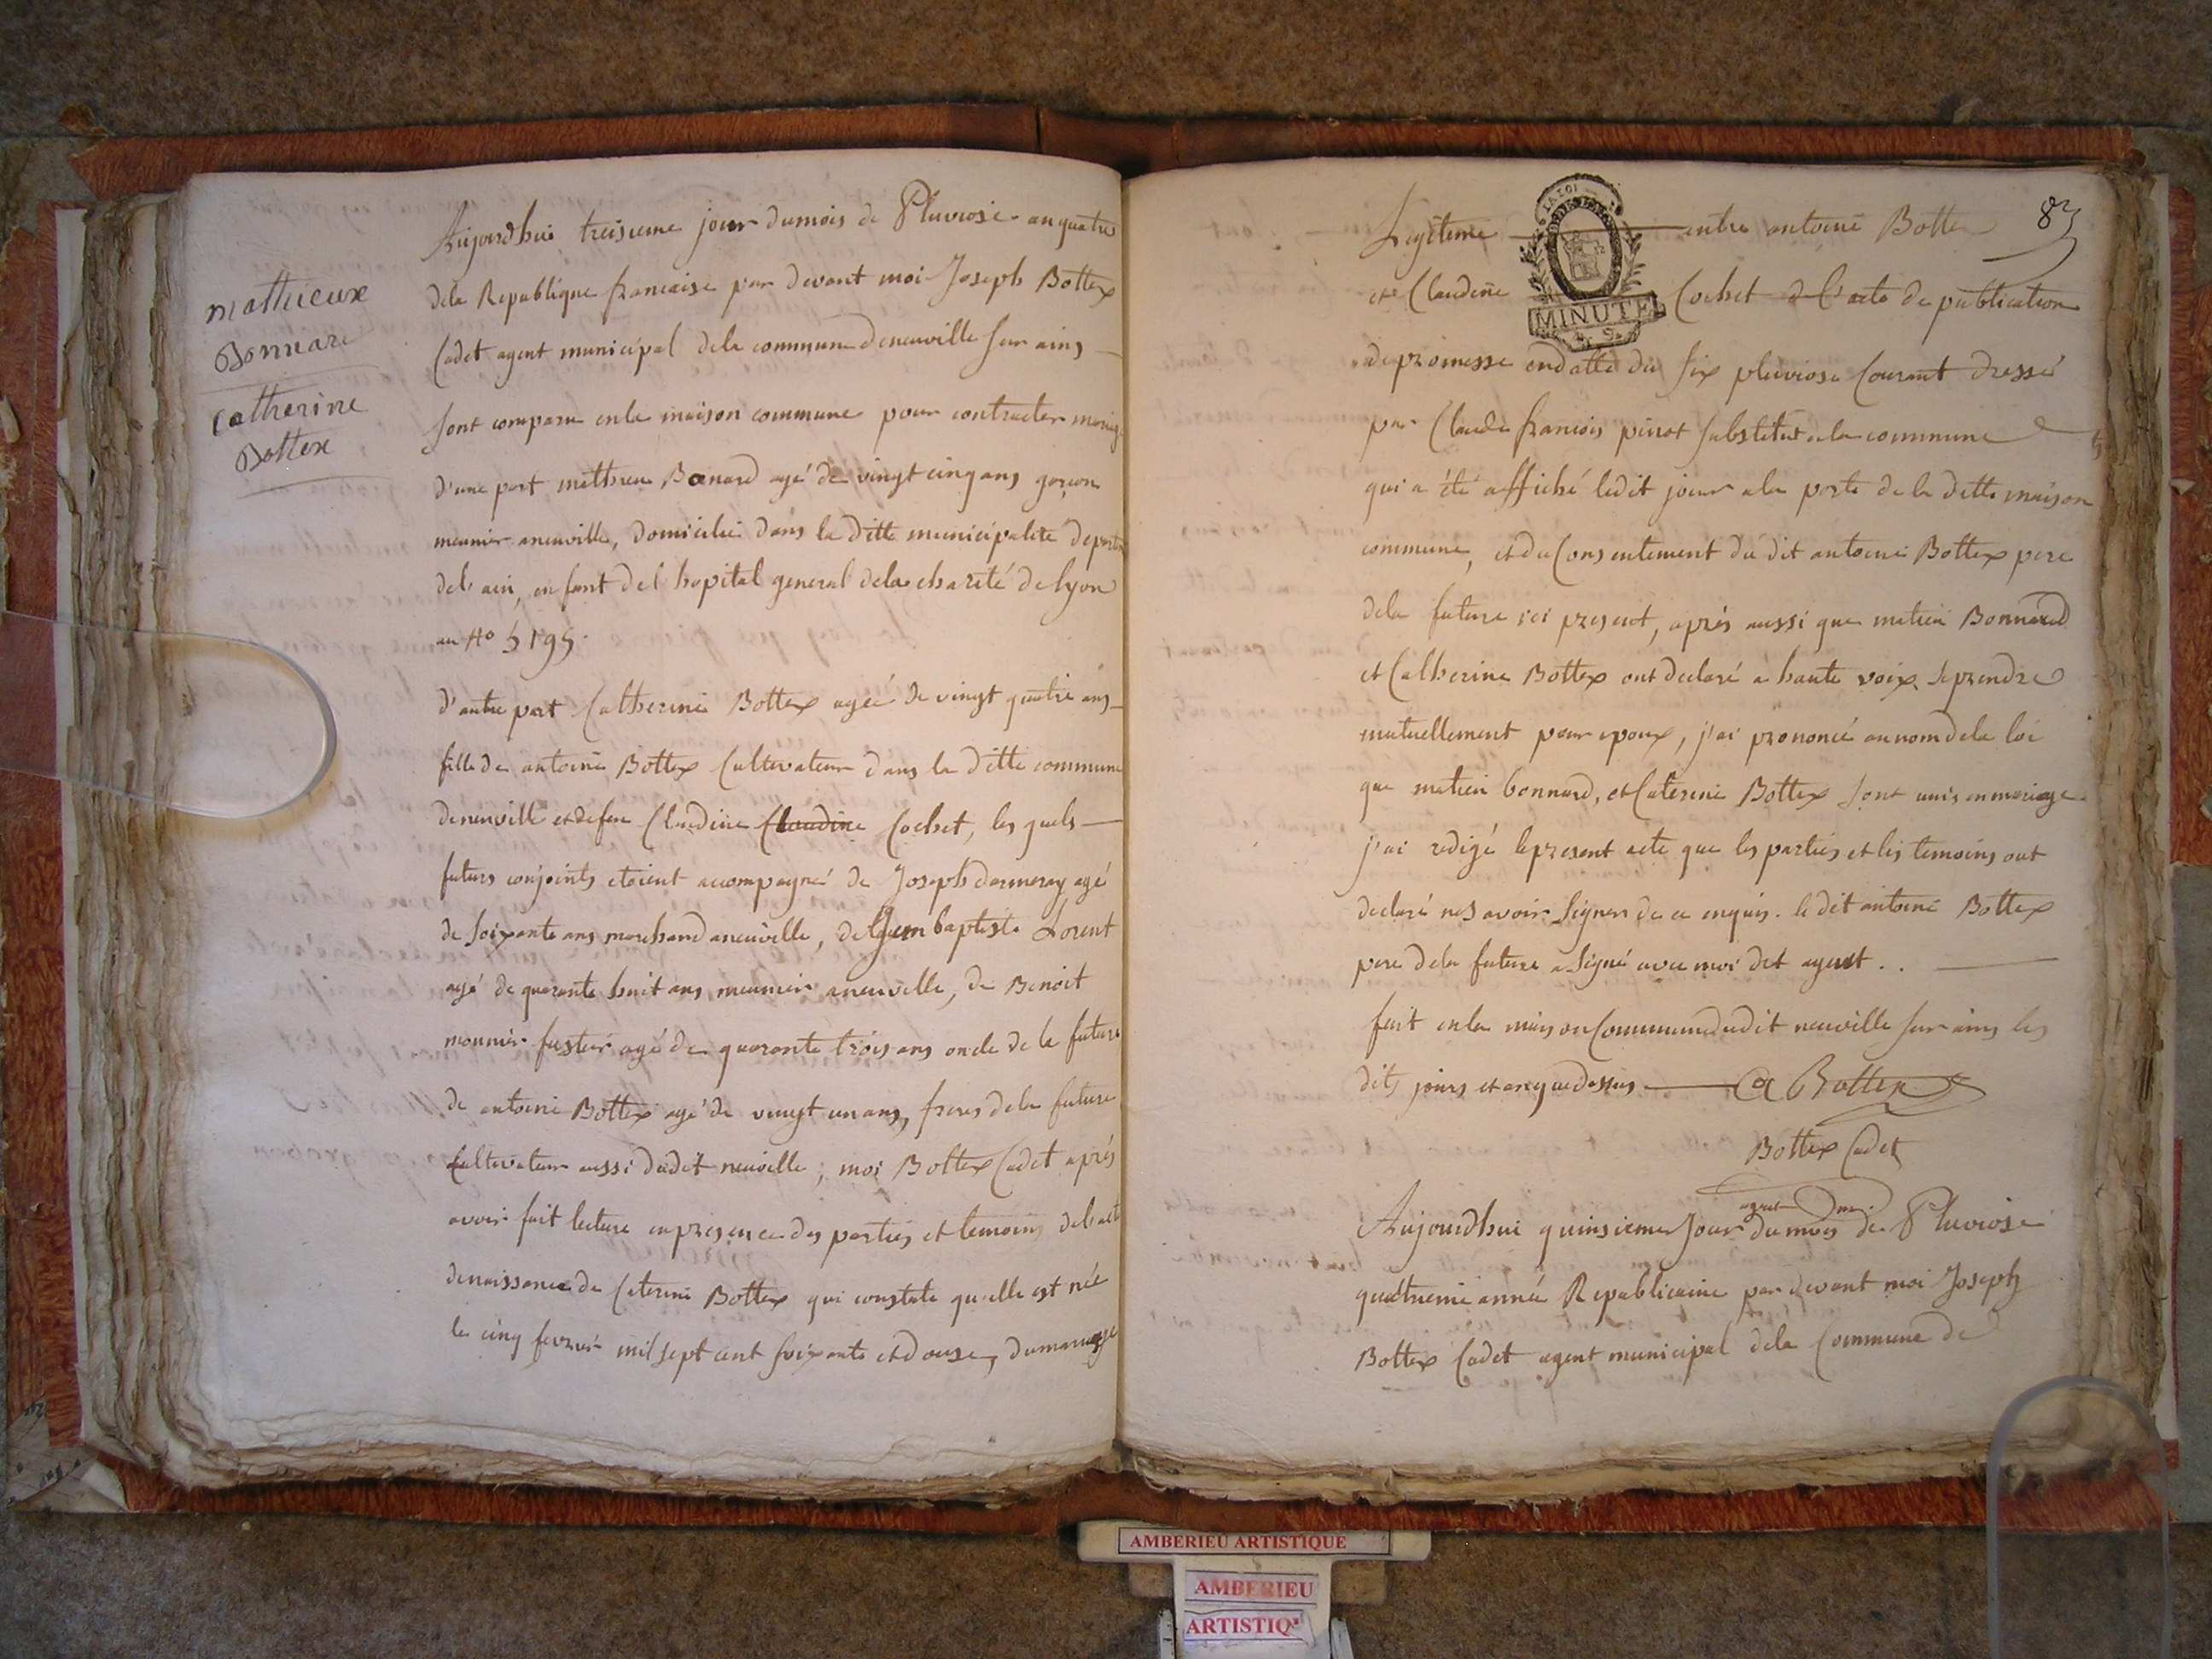 mathieux
Bonnard
catherine
Bottex
Aujourdhui treisieme jour dumois de Pluviose an quatre
dela Republique francaise par devant moi Joseph Bottex
Cadet agent municipal dela commune deneuville sur ains
sont comparu enla maison commune pour contracter mariage
d'une part mathieu Bonard agé de vingt cinq ans garcon
meunier aneuville, domicilié dans la ditte municipalité
del'ain, enfant del hopital general dela charité de lyon
au No
d'autre part Catherine Bottex ageé de vingt quatre ans
fille de antoine Bottex Cultivateur dans la ditte commune
deneuville et defeu Claudine Claudine Cochet, les quels
futurs conjoints etoient accompagné de Joseph agé
de soixante ans marchand aneuville, de baptiste Lorent
agé de quarante huit ans meunier aneuville, de Benoit
monnier agé de quarante trois ans oncle de la future
de antoine Bottex agé de vingt un ans, freres dela future
Cultivateur aussi dudit neuville; moi Bottex Cadet aprés
avoir fait lecture enpresence des parties et temoins del'acte
denaissance de Caterine Bottex qui constate quelle est née
le cinq fevrier mil sept cent soixante et douse, dumariage
83
Legiteme entre antoine Bottex
LA LOI
et Claudine Cochet de l'acte de publication
MINUTE
de promesse endatte du six pluviose Courant dressé
par Claude francois pinot substitut dela commune
qui a été affiché ledit jour ala porte de la ditte maison
commune, et du Consentement du dit antoine Bottex pere
dela future ici present, aprés aussi que matieu Bonnard
et Catherine Bottex ont declaré a haute voix seprendre
mutuellement pour epoux, j'ai prononcé aunom dela loi
que matieu bonnard, et Caterine Bottex sont unis en mariage
j'ai redigé lepresent acte que les parties et les temoins ont
declaré ne savoir signer de ce enquis. le dit antoine Bottex
pere dela future a signé avec moi dit agent . .
fait enla maison Commune dudit neuville sur ains les
dits jours et an que dessus A Bottex
Bottex Cadet
agent
Aujourdhui quinsieme Jour du mois de Pluviose
quatrieme anné Republicaine par devant moi Joseph
Bottex Cadet agent municipal dela Commune de
AMBERIEU ARTISTIQUE
AMBERIEU
ARTISTIQ